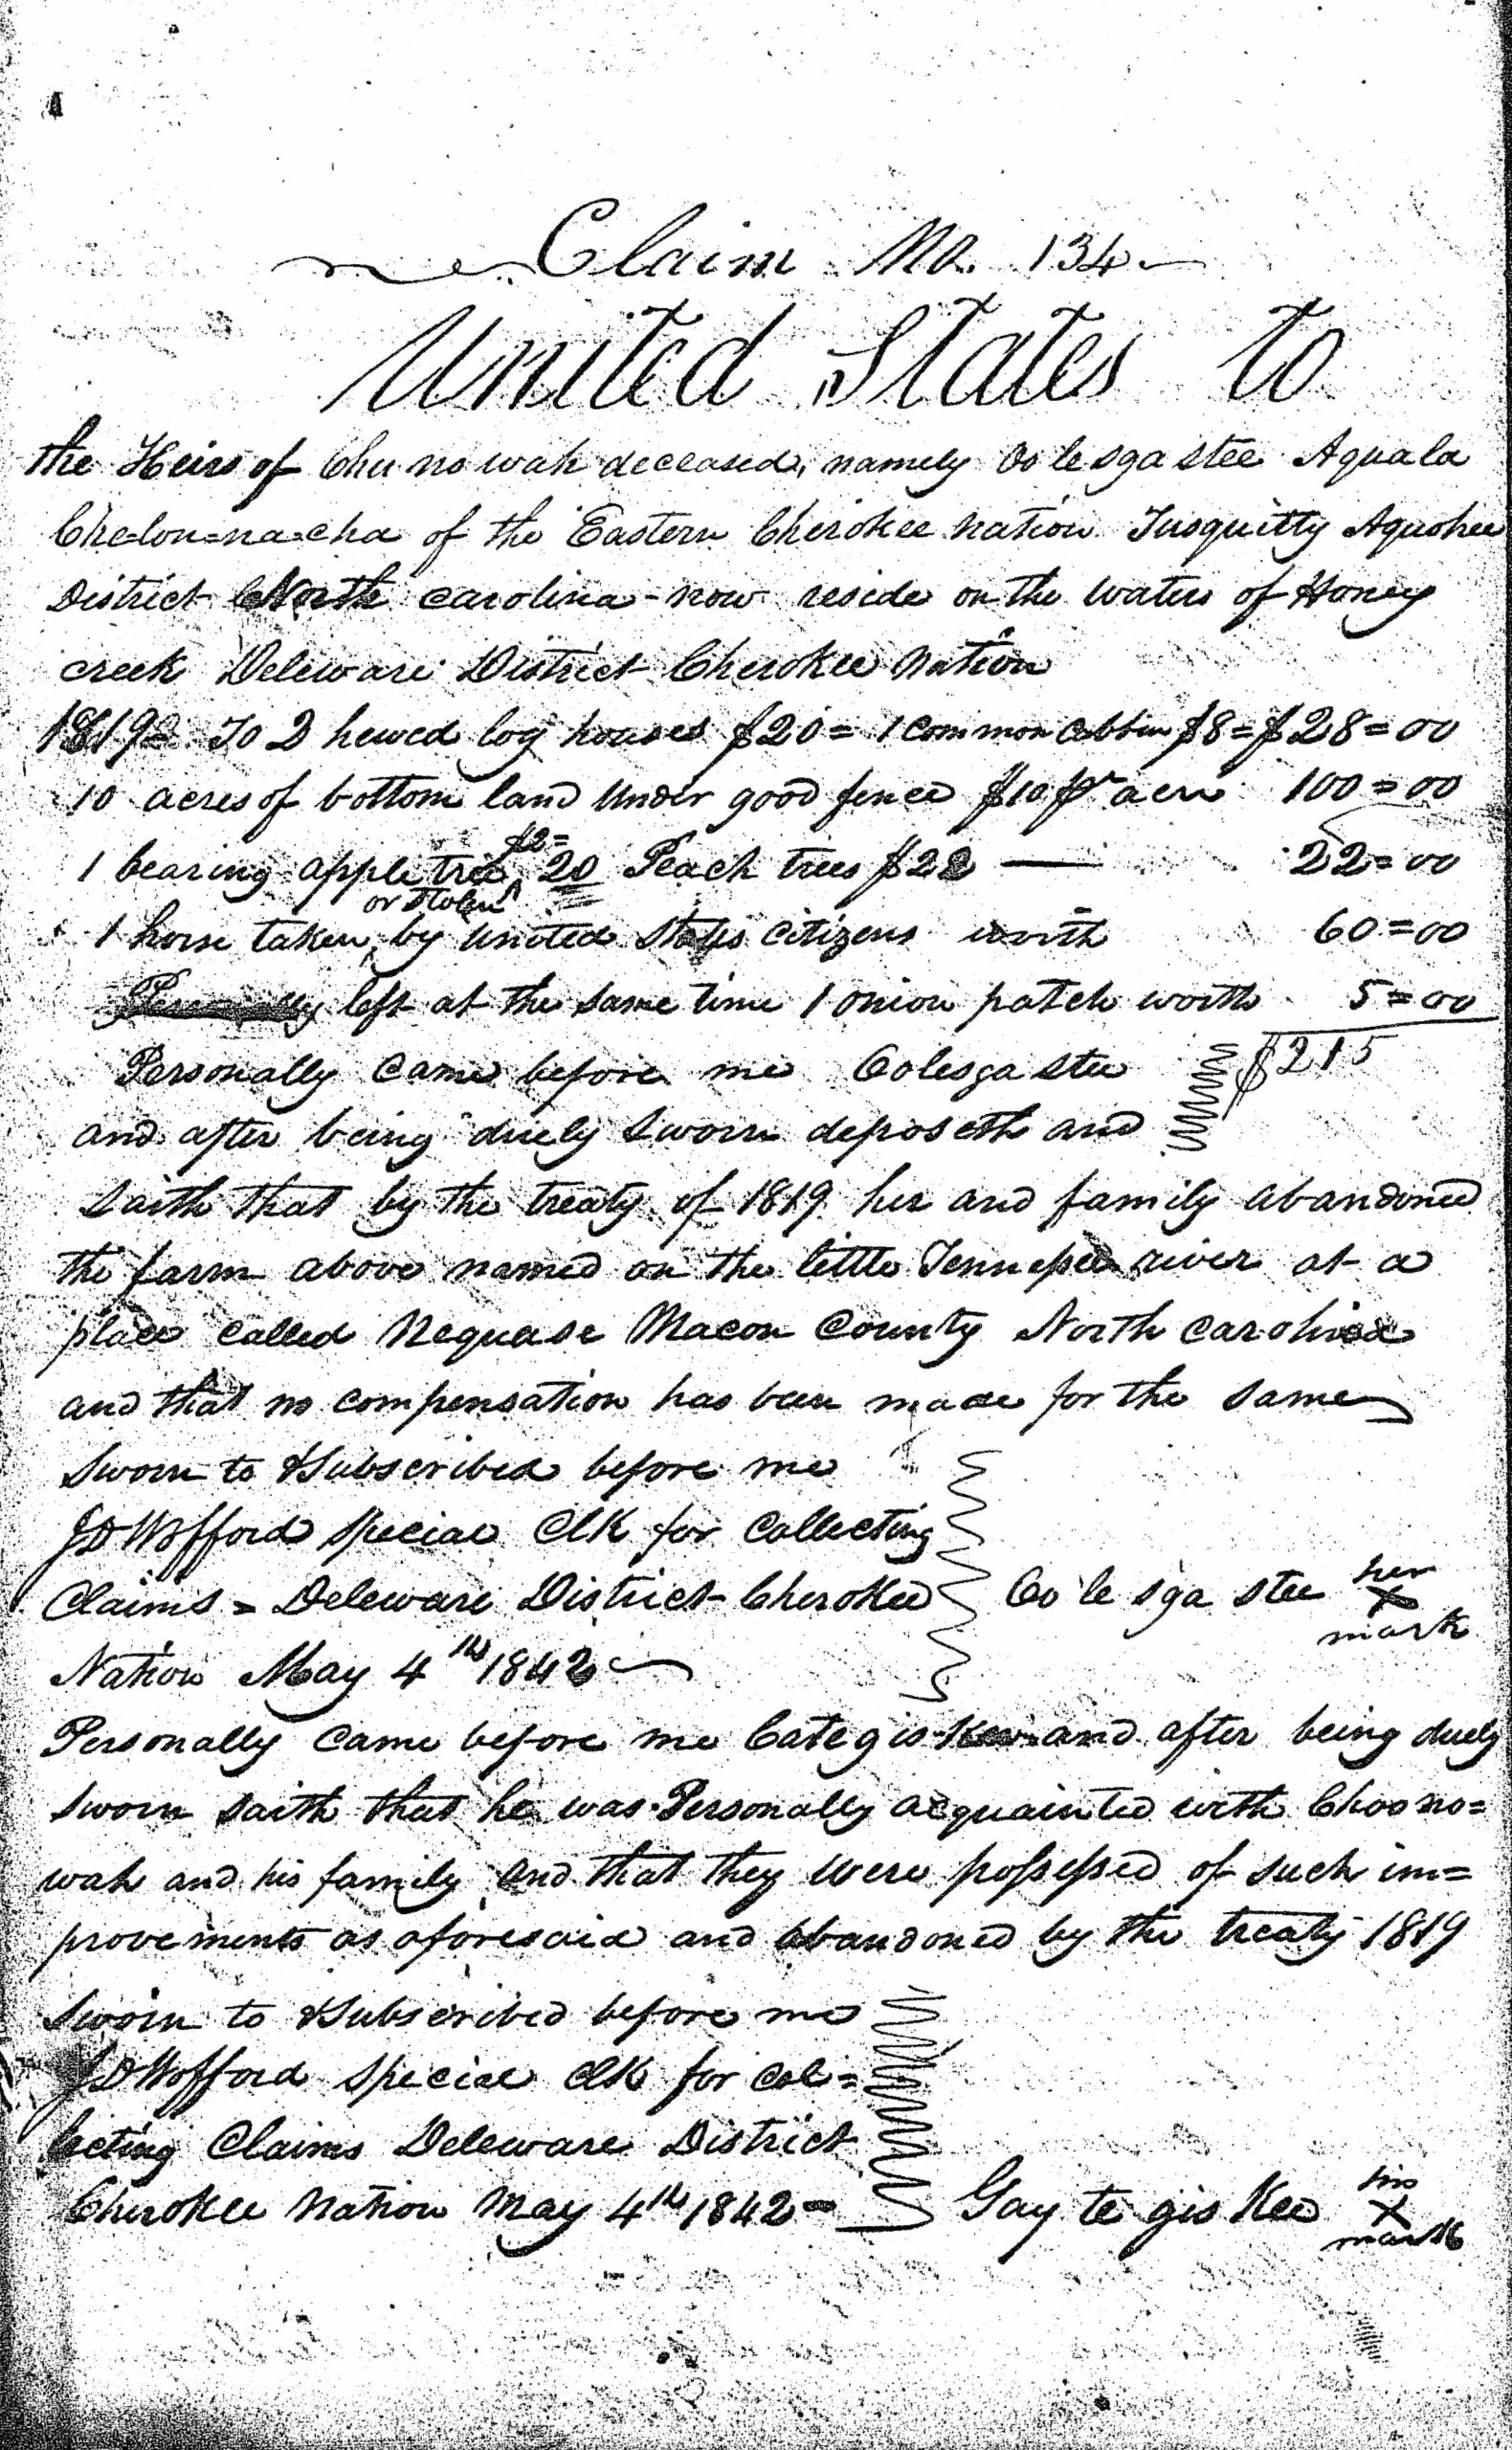 Claim No. 134
United States to
the Heirs of Chu no wah deceased, namely Oo le sga stee Aquala
Che-lou=na=cha of the Eastern Cherokee Nation Tusquitty Aquohee
District North Carolina - now reside on the waters of Honey
creek Deleware District Cherokee Nation
1819 To 2 hewed log houses $20 = 1 common cabbin $8 = $28=00
10 acres of bottom land under good fence $10 pr acre 100=00
1 bearing apple tree $2= 20 Peach trees $22 — 22=00
1 horse taken or stolen by United States citizens worth 60=00
left at the same time 1 onion patch worth 5=00
Personally came before me Oolesga stee $215
and after being duely sworn deposeth and
saith that by the treaty of 1819 her and family abandoned
the farm above named on the little Tennessee river at a
place called Nequase Macon County North Carolina
and that no compensation has been made for the same
Sworn to & Subscribed before me
JD Wofford Special Clk for Collecting
Claims = Deleware District Cherokee Oo le sga stee her X mark
Nation May 4th 1842
Personally came before me Categis-kee and after being duely
sworn saith that he was Personally acquainted with Choo no=
wah and his family and that they were possessed of such im=
provements as aforesaid and abandoned by the treaty 1819
Sworn to & Subscribed before me
JD Wofford Special Clk for col=
lecting Claims Deleware District
Cherokee Nation May 4th 1842= Gay te gis kee his X mark